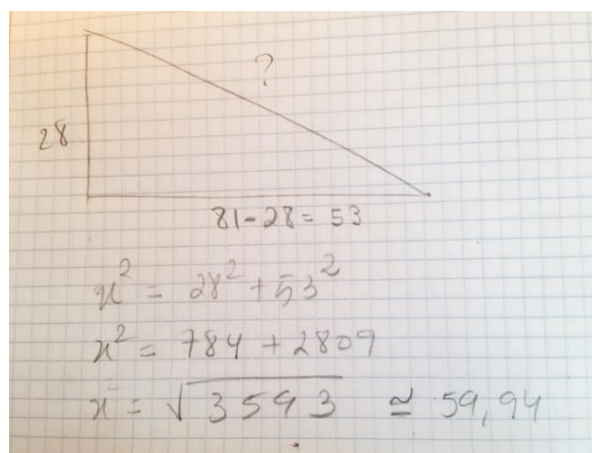 ?
28
81-28=53
x² = 28² + 53²
x² = 784 + 2809
x = √3593 ≃ 59,94